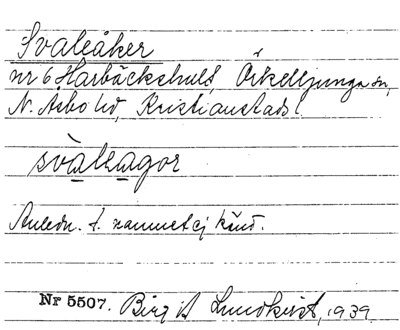 Svaleåker
nr 6 Harbäckshult, Örkelljunga sn,
N. Åsbo hd, Kristianstads l.
svaleagor
Anledn. t. namnet ej känd.
Nr 5507. Birgit Lundkvist, 1939